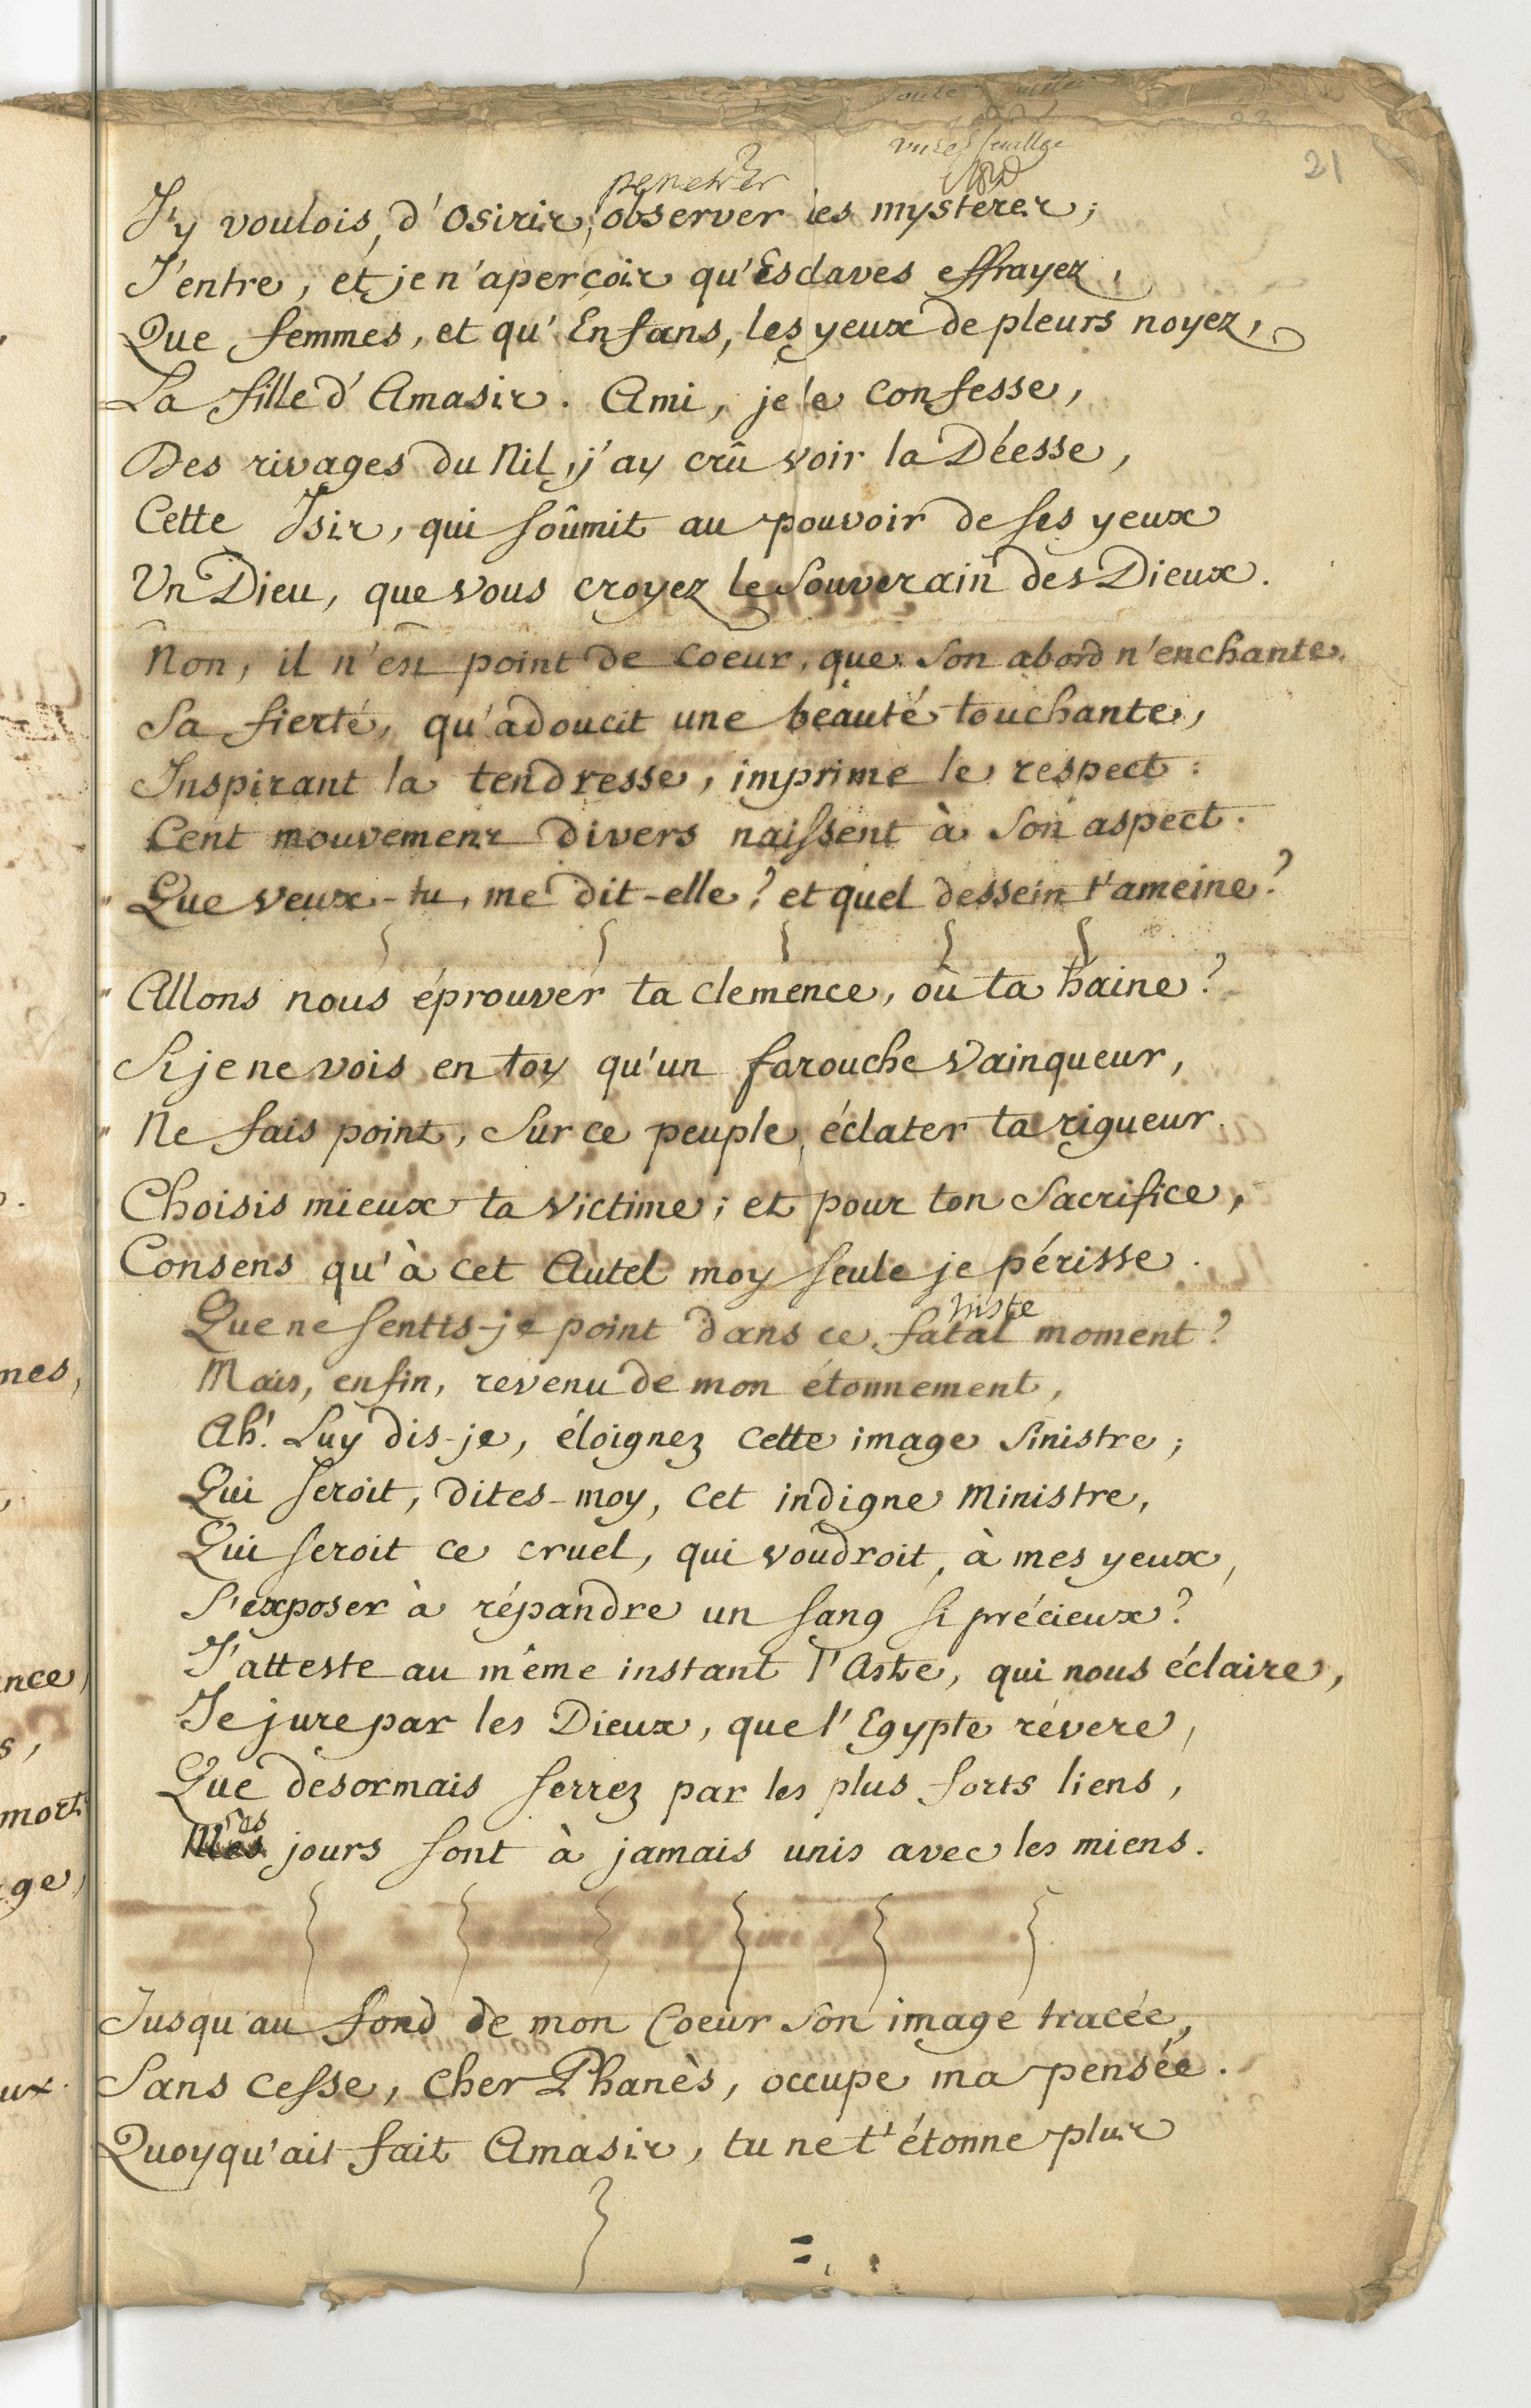 21
penetrer
J'y voulois, d'Osiris, observer les mysteres;
J'entre, et je n'aperçois qu'Esclaves effrayez,
Que femmes, et qu'Enfans, les yeux de pleurs noyez,
La fille d'Amasis. Ami, je le confesse,
Des rivages du Nil, j'ay crû voir la Déesse,
Cette Isis, qui soûmit au pouvoir de ses yeux
Un Dieu, que vous croyez le Souverain des Dieux.
Non, il n'est point de coeur, que son abord n'enchante.
Sa fierté, qu'adoucit une beauté touchante,
Inspirant la tendresse, imprime le respect:
Cent mouvemens divers naissent à son aspect.
" Que veux-tu, me dit-elle? et quel dessein t'ameine?
" Allons nous éprouver ta clemence, ou ta haine?
Si je ne vois en toy qu'un farouche Vainqueur,
" Ne fais point, sur ce peuple, éclater ta rigueur.
Choisis mieux ta victime; et pour ton Sacrifice,
Consens qu'à cet Autel moy seule je périsse.
triste
Que ne sentis-je point dans ce fatal moment?
Mais, enfin, revenu de mon étonnement,
Ah! Luy dis-je, éloignez cette image sinistre;
Qui seroit, dites-moy, cet indigne Ministre,
Qui seroit ce cruel, qui voudroit, à mes yeux,
S'exposer à répandre un sang si précieux?
J'atteste au même instant l'Astre, qui nous éclaire,
Je jure par les Dieux, que l'Egypte révere,
Que désormais serrez par les plus forts liens,
ses
Mes jours sont à jamais unis avec les miens.
Jusqu'au fond de mon Coeur son image tracée,
Sans cesse, cher Phanès, occupe ma pensée.
Quoyqu'ait fait Amasis, tu ne t'étonne plus
mes,
nce,
s,
mort
ge,
ux.